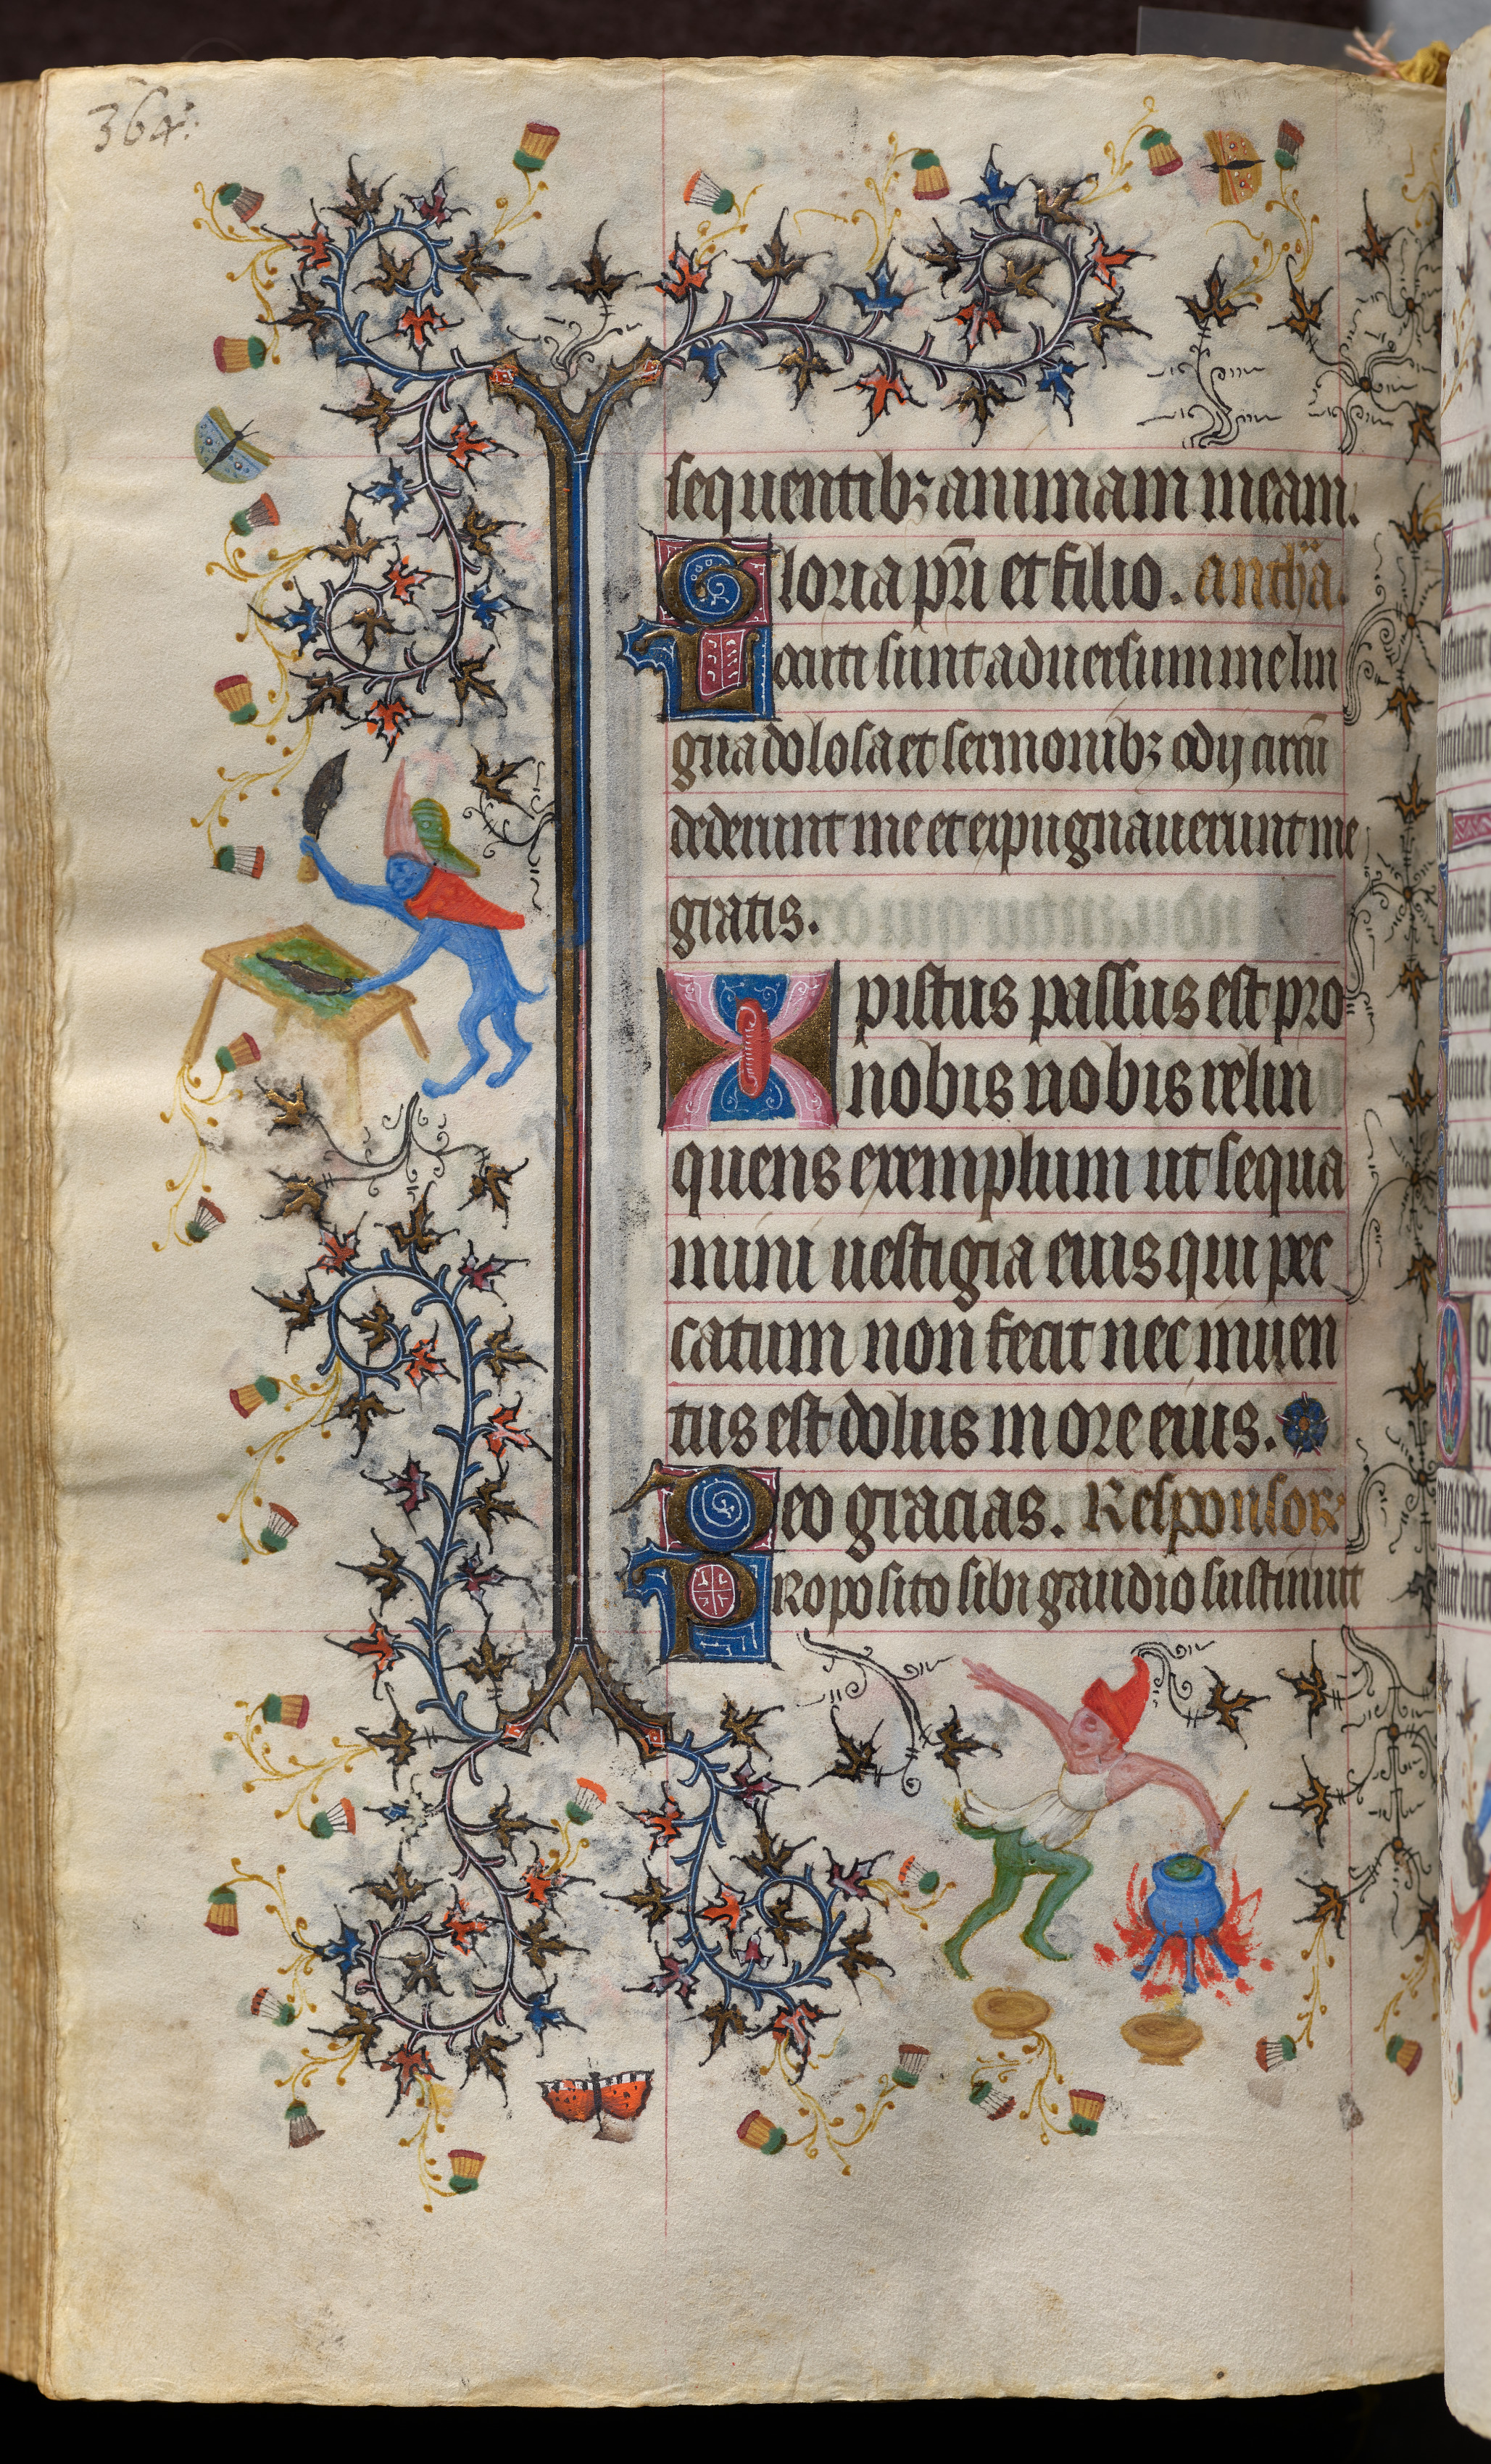 364.
sequentibꝫ animam meam.
Gloria pr̄i et filio. anth̄a.
Locuti sunt aduersum me lin
gua dolosa et sermonibꝫ odij circū
dederunt me et expugnauerunt me
gratis.
Xpistus passus est pro
nobis nobis relin
quens exemplum ut sequa
mini uestigia eius qui pec
catum non fecit nec inuen
tus est dolus in ore eius.
Deo gracias. Responsor
Proposito sibi gaudio sustinuit